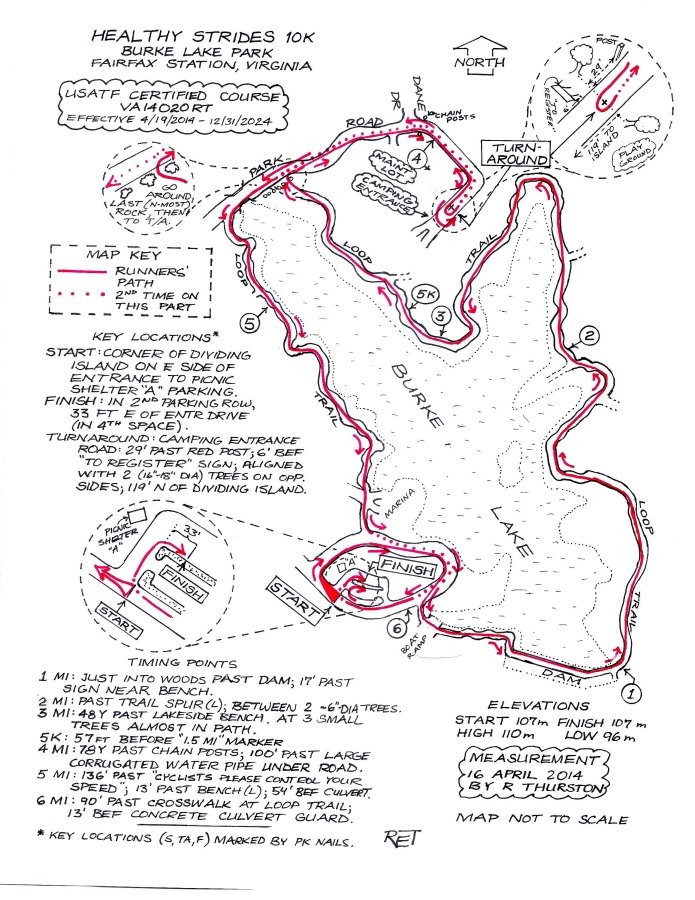 HEALTHY STRIDES 10K
BURKE LAKE PARK
FAIRFAX STATION, VIRGINIA
USATF CERTIFIED COURSE
VA14020RT
EFFECTIVE 4/19/2014 - 12/31/2024
NORTH
POST
29'
6'
"TO REGISTER"
119' TO ISLAND
PLAY GROUND
TURN-AROUND
DANE DR
CHAIN POSTS
PARK ROAD
4
MAINT LOT
CAMPING ENTRANCE
GO AROUND
LAST (N-MOST)
ROCK, THEN
TO T/A.
MAP KEY
RUNNERS' PATH
2ND TIME ON THIS PART
LOOP
5
LOOP
5K
3
TRAIL
2
BURKE
LAKE
TRAIL
MARINA
LOOP
TRAIL
KEY LOCATIONS*
START: CORNER OF DIVIDING
ISLAND ON E SIDE OF
ENTRANCE TO PICNIC
SHELTER "A" PARKING.
FINISH: IN 2ND PARKING ROW,
33 FT E OF ENTR DRIVE
(IN 4TH SPACE).
TURNAROUND: CAMPING ENTRANCE
ROAD: 29' PAST RED POST; 6' BEF
"TO REGISTER" SIGN; ALIGNED
WITH 2 (16"-18" DIA) TREES ON OPP.
SIDES; 119' N OF DIVIDING ISLAND.
PICNIC SHELTER "A"
33'
FINISH
START
"A"
FINISH
START
6
BOAT RAMP
DAM
1
TIMING POINTS
1 MI: JUST INTO WOODS PAST DAM; 17' PAST
SIGN NEAR BENCH.
2 MI: PAST TRAIL SPUR (L); BETWEEN 2 ~6" DIA TREES.
3 MI: 48Y PAST LAKESIDE BENCH, AT 3 SMALL
TREES ALMOST IN PATH.
5K: 57 FT BEFORE "1.5 MI" MARKER
4 MI: 78Y PAST CHAIN POSTS; 100' PAST LARGE
CORRUGATED WATER PIPE UNDER ROAD.
5 MI: 136' PAST "CYCLISTS PLEASE CONTROL YOUR
SPEED"; 13' PAST BENCH (L); 54' BEF CULVERT.
6 MI: 90' PAST CROSSWALK AT LOOP TRAIL;
13' BEF CONCRETE CULVERT GUARD.
* KEY LOCATIONS (S, TA, F) MARKED BY PK NAILS.
RET
ELEVATIONS
START 107m FINISH 107m
HIGH 110m LOW 96m
MEASUREMENT
16 APRIL 2014
BY R THURSTON
MAP NOT TO SCALE